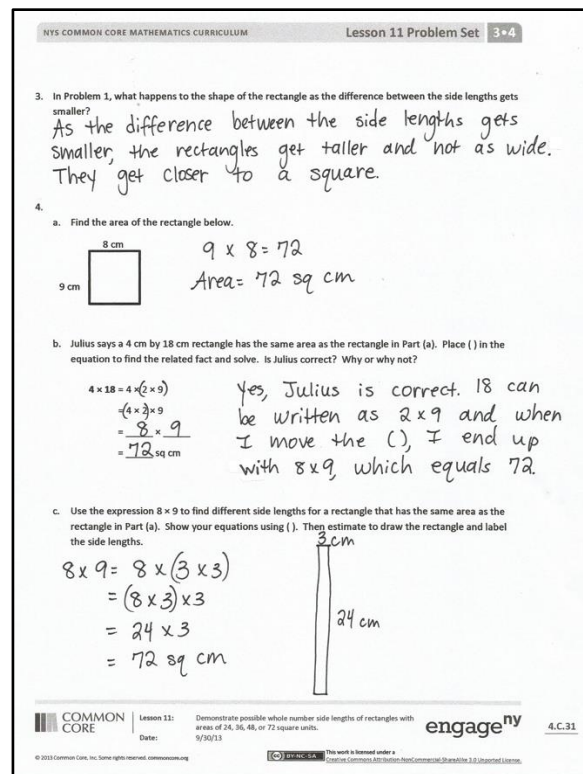 NYS COMMON CORE MATHEMATICS CURRICULUM
Lesson 11 Problem Set 3•4
3. In Problem 1, what happens to the shape of the rectangle as the difference between the side lengths gets
smaller?
As the difference between the side lengths gets
smaller, the rectangles get taller and not as wide.
They get closer to a square.
4.
a. Find the area of the rectangle below.
8 cm
9 cm
9 x 8 = 72
Area = 72 sq cm
b. Julius says a 4 cm by 18 cm rectangle has the same area as the rectangle in Part (a). Place ( ) in the
equation to find the related fact and solve. Is Julius correct? Why or why not?
4 × 18 = 4 ×(2 × 9)
=(4 × 2)× 9
= 8 × 9
= 72 sq cm
Yes, Julius is correct. 18 can
be written as 2x9 and when
I move the (), I end up
with 8x9, which equals 72.
c. Use the expression 8 × 9 to find different side lengths for a rectangle that has the same area as the
rectangle in Part (a). Show your equations using ( ). Then estimate to draw the rectangle and label
the side lengths.
8 x 9 = 8 x (3 x 3)
= (8 x 3) x 3
= 24 x 3
= 72 sq cm
3 cm
24 cm
COMMON
CORE
Lesson 11: Demonstrate possible whole number side lengths of rectangles with
areas of 24, 36, 48, or 72 square units.
Date: 9/30/13
engage ny
4.C.31
© 2013 Common Core, Inc. Some rights reserved. commoncore.org
CC BY-NC-SA
This work is licensed under a
Creative Commons Attribution-NonCommercial-ShareAlike 3.0 Unported License.